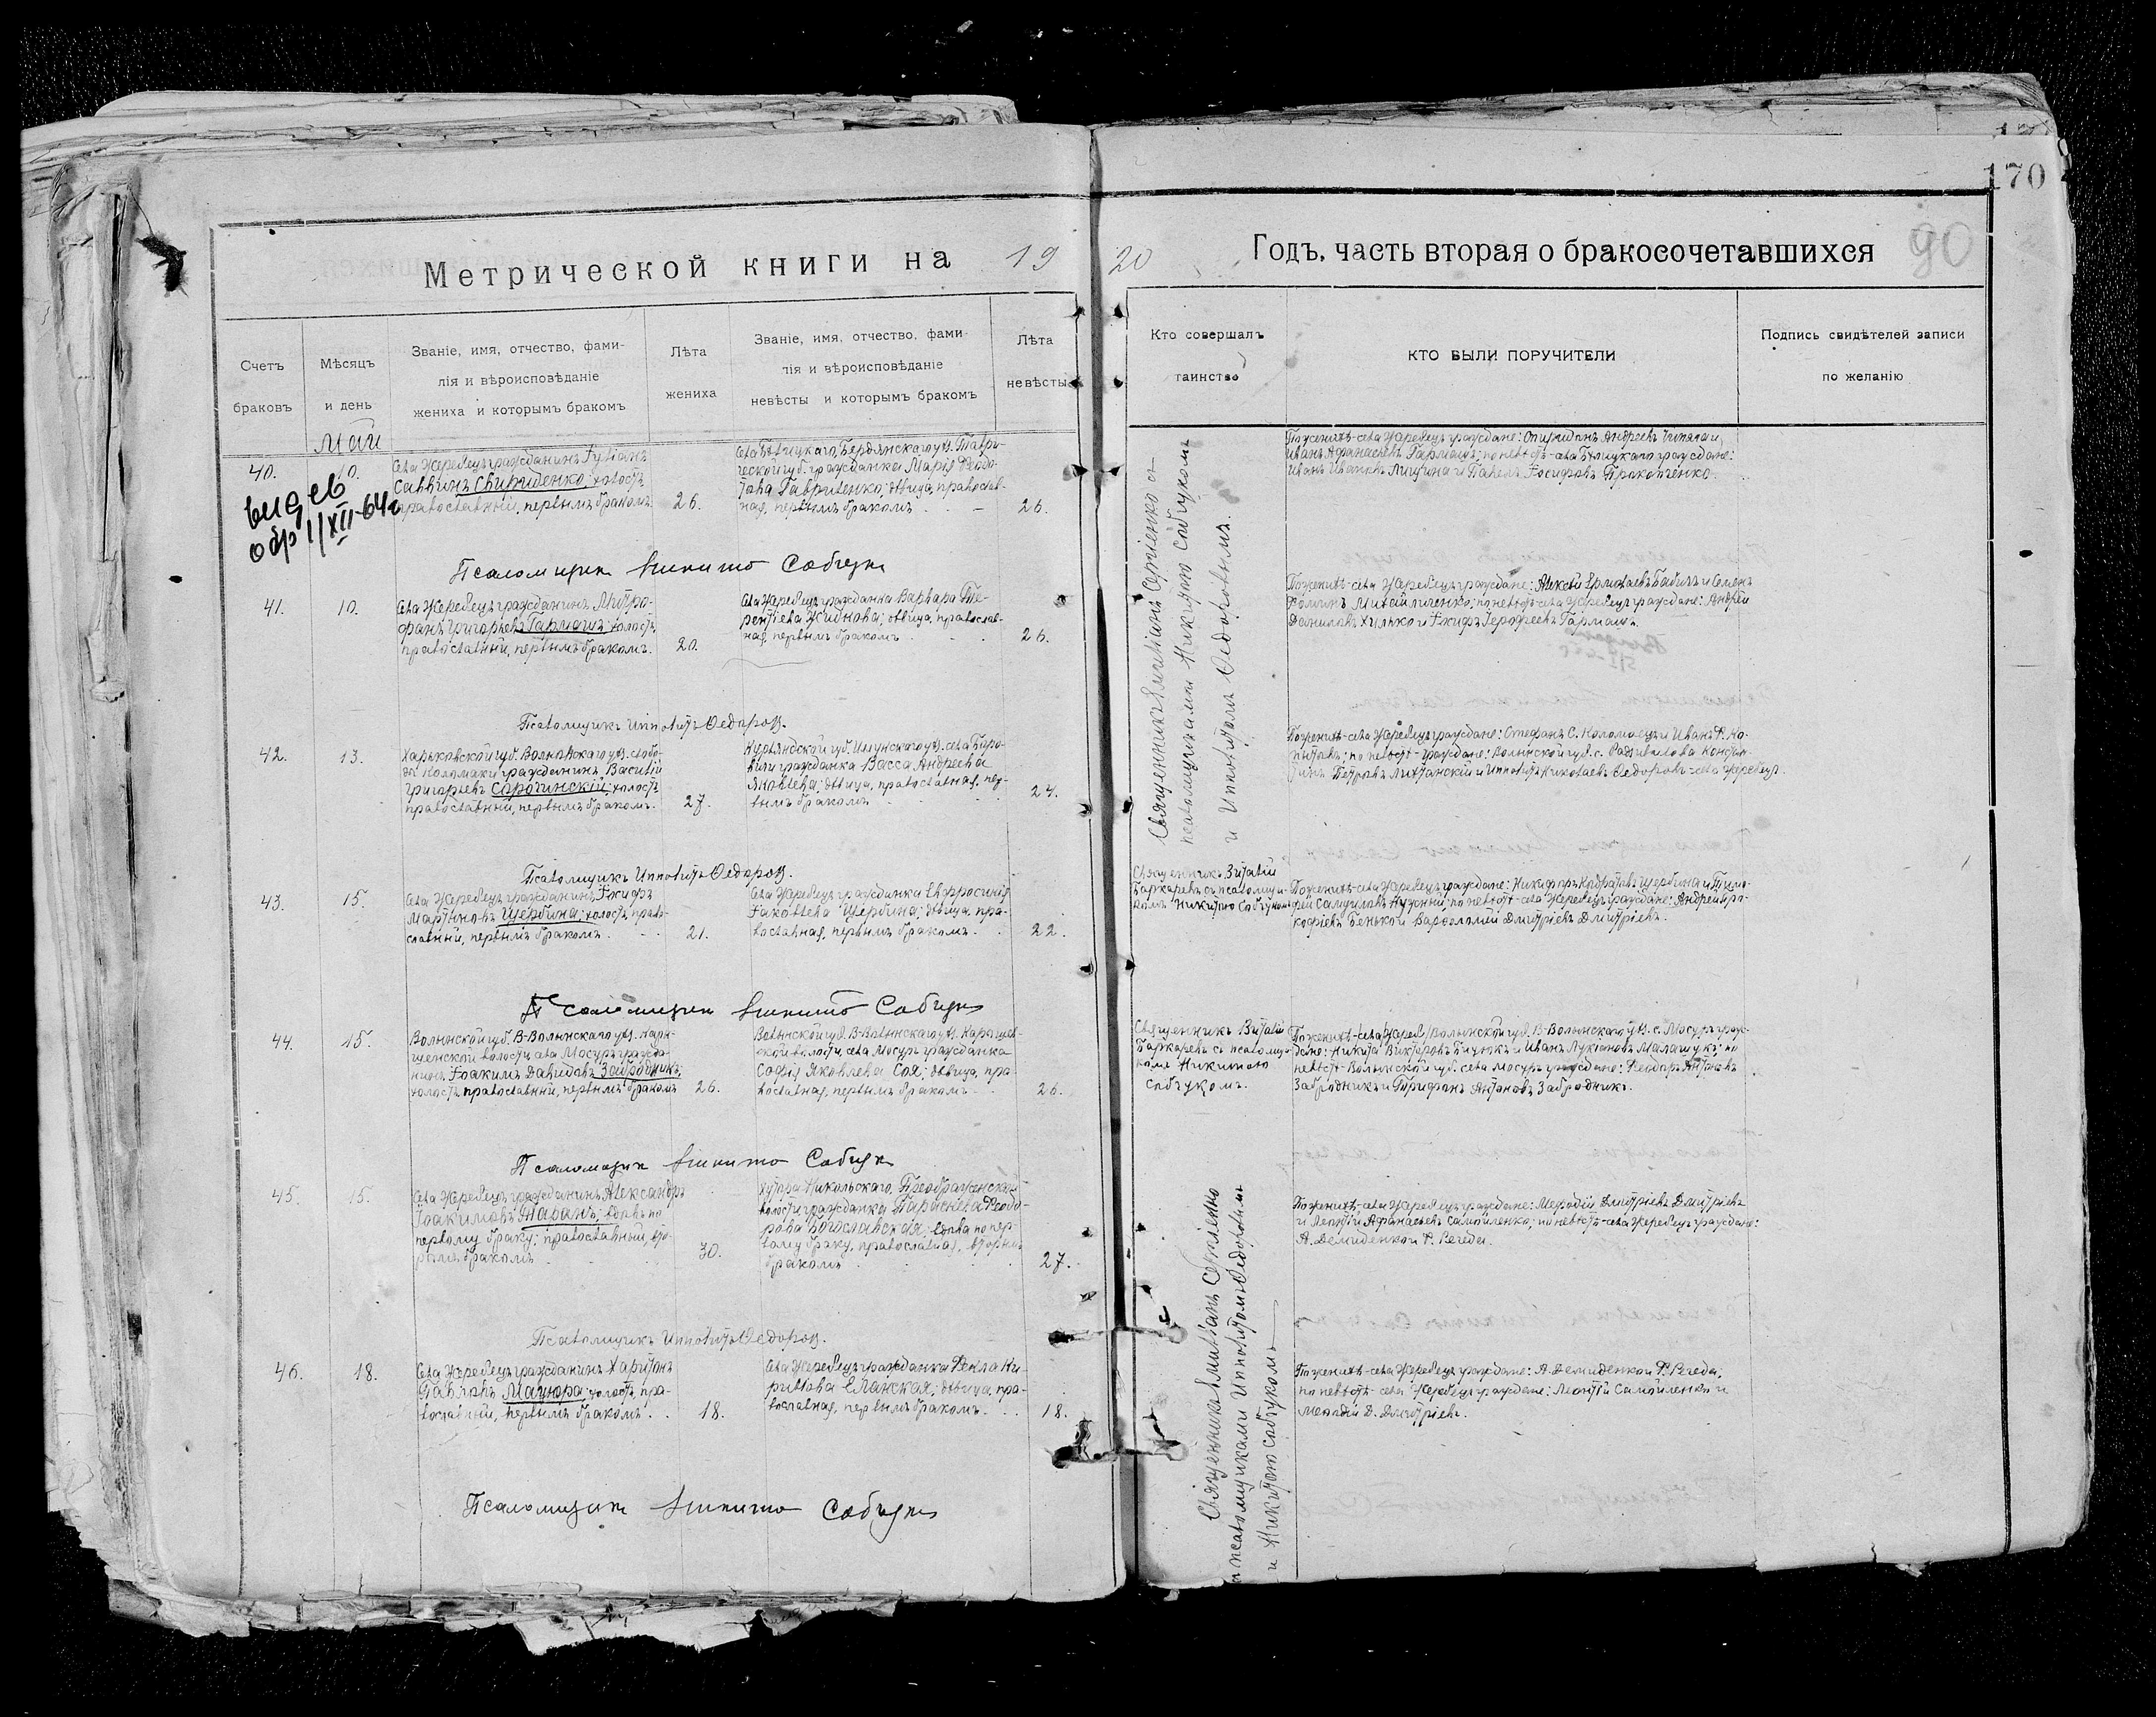 170
90
Метрической книги на 19
20 Годъ, часть вторая о бракосочетавшихся
Счетъ
браковъ
Мѣсяцъ
и день
Званіе, имя, отчество, фами-
лія и вѣроисповѣданіе
жениха и которымъ бракомъ
Лѣта
жениха
Званіе, имя, отчество, фами-
лія и вѣроисповѣданіе
невѣсты и которымъ бракомъ
Лѣта
невѣсты
Кто совершалъ
таинство
КТО БЫЛИ ПОРУЧИТЕЛИ
Подпись свидѣтелей записи
по желанію
Май
40.
10.
Села Жеребецъ гражданинъ
Саввинъ Свириденко; холостъ
православный, первымъ бракомъ.
26.
Бердянскаго уѣз. Таври-
ческой губ. гражданка Марія Ѳеодо-
това Гавриленко; дѣвица, православ-
ная, первымъ бракомъ
26.
выдев
обр 1/XII-64г
Священникъ Емиліанъ Сергіенко съ
псаломщиками Никитою Собчукомъ
и Ипполитомъ Ѳедоровымъ.
По женихѣ-села Жеребецъ граждане: Спиридонъ Андреевъ
Иванъ Афанасьевъ Гармашъ; по невѣстѣ-села граждане:
Иванъ Ивановъ и Павелъ Іосифовъ Прокопченко.
Псаломщикъ Никита Собчукъ
41.
10.
Села Жеребецъ гражданинъ Митро-
фанъ Григорьевъ Гармашъ; холостъ
православный, первымъ бракомъ.
20.
Села Жеребецъ гражданка Варвара Те-
рентьева Жиднова; дѣвица, православ-
ная, первымъ бракомъ
26.
По женихѣ-села Жеребецъ граждане: Алексей Ермолаевъ Бабичъ и Семенъ
Фоминъ Михайличенко; по невѣстѣ-села Жеребецъ граждане: Андрей
Даниловъ Хилько и Іосифъ Іерофеевъ Гармашъ.
Псаломщикъ Ипполитъ Ѳедоровъ.
42.
13.
Харьковской губ. Волковскаго уѣз. слобо-
ды Коломаки гражданинъ Василій
Григорьевъ Сорочинскій; холостъ
православный, первымъ бракомъ.
27.
Курляндской губ.
гражданка Васса Андреева
Яковлева; дѣвица, православная, пер-
вымъ бракомъ
24.
По женихѣ-села Жеребецъ граждане: Стефанъ С. Коломоецъ и Иванъ Ѳ. Ко-
пытовъ; по невѣстѣ-граждане: Волынской губ. с. Радзивилова Констан-
тинъ Петровъ и Ипполитъ Николаевъ Ѳедоровъ-села Жеребецъ.
Псаломщикъ Ипполитъ Ѳедоровъ.
43.
15.
Села Жеребецъ гражданинъ Іосифъ
Мартыновъ Щербина; холостъ, право-
славный, первымъ бракомъ
21.
Села Жеребецъ гражданка Евфросинія
Іаковлева Щербина; дѣвица, пра-
вославная, первымъ бракомъ
22.
Священникъ Виталій
съ псаломщи-
комъ Никитою Собчукомъ
По женихѣ-села Жеребецъ граждане: Никифоръ Кодратовъ Щербина и Тимо-
фей Самуиловъ Нужный; по невѣстѣ-села Жеребецъ граждане: Андрей Про-
кофіевъ Бенько и Варфоломій Дмитріевъ Дмитріевъ.
Псаломщикъ Никита Собчукъ
44.
15.
Волынской губ. В-Волынскаго уѣз.
волости, села Мосуръ гражда-
нинъ Іоакимъ Давидовъ Забродникъ;
холостъ православный, первымъ бракомъ
26.
Волынской губ. В-Волынскаго уѣз.
волости, села Мосуръ гражданка
Софія Яковлева Соя; дѣвица, пра-
вославная, первымъ бракомъ
26.
Священникъ Виталій
съ псаломщи-
комъ Никитою
Собчукомъ.
По женихѣ-села Волынской губ. В-Волынскаго уѣз. с. Мосуръ граж-
дане: Никита Викторовъ и Иванъ Лукіановъ Малащукъ; по
невѣстѣ-Волынской губ. села Мосуръ граждане: Ѳеодоръ Антоновъ
Забродникъ и Трифонъ Антоновъ Забродникъ.
Псаломщикъ Никита Собчукъ
45
15.
Села Жеребецъ гражданинъ Александръ
Іоакимовъ Таранъ; вдовъ по
первому браку; православный, вто-
рымъ бракомъ
30.
Хутора Никольскаго, Преображенской
волости гражданка Параскева Ѳеодо-
рова Богославская; вдова по пер-
вому браку, православная, вторымъ
бракомъ
27.
Священникъ Емиліанъ Сергіенко
съ псаломщиками Ипполитомъ Ѳедоровымъ
и Никитою Собчукомъ
По женихѣ-села Жеребецъ граждане: Меѳодій Дмитріевъ Дмитріевъ
и Леонтій Афанасьевъ Самойленко; по невѣстѣ-села Жеребецъ граждане:
А. Демиденко и Ѳ. Регеда.
Псаломщикъ Ипполитъ Ѳедоровъ.
46.
18.
Села Жеребецъ гражданинъ Харитонъ
Мацюра; холостъ, пра-
вославный, первымъ бракомъ
18.
Села Жеребецъ гражданка Ѳекла Ки-
риллова Еланская; дѣвица, пра-
вославная, первымъ бракомъ
18.
По женихѣ-села Жеребецъ граждане: А. Демиденко и Ѳ. Регеда;
по невѣстѣ-села Жеребецъ граждане: Леонтій Самойленко и
Меѳодій Д. Дмитріевъ.
Псаломщикъ Никита Собчукъ